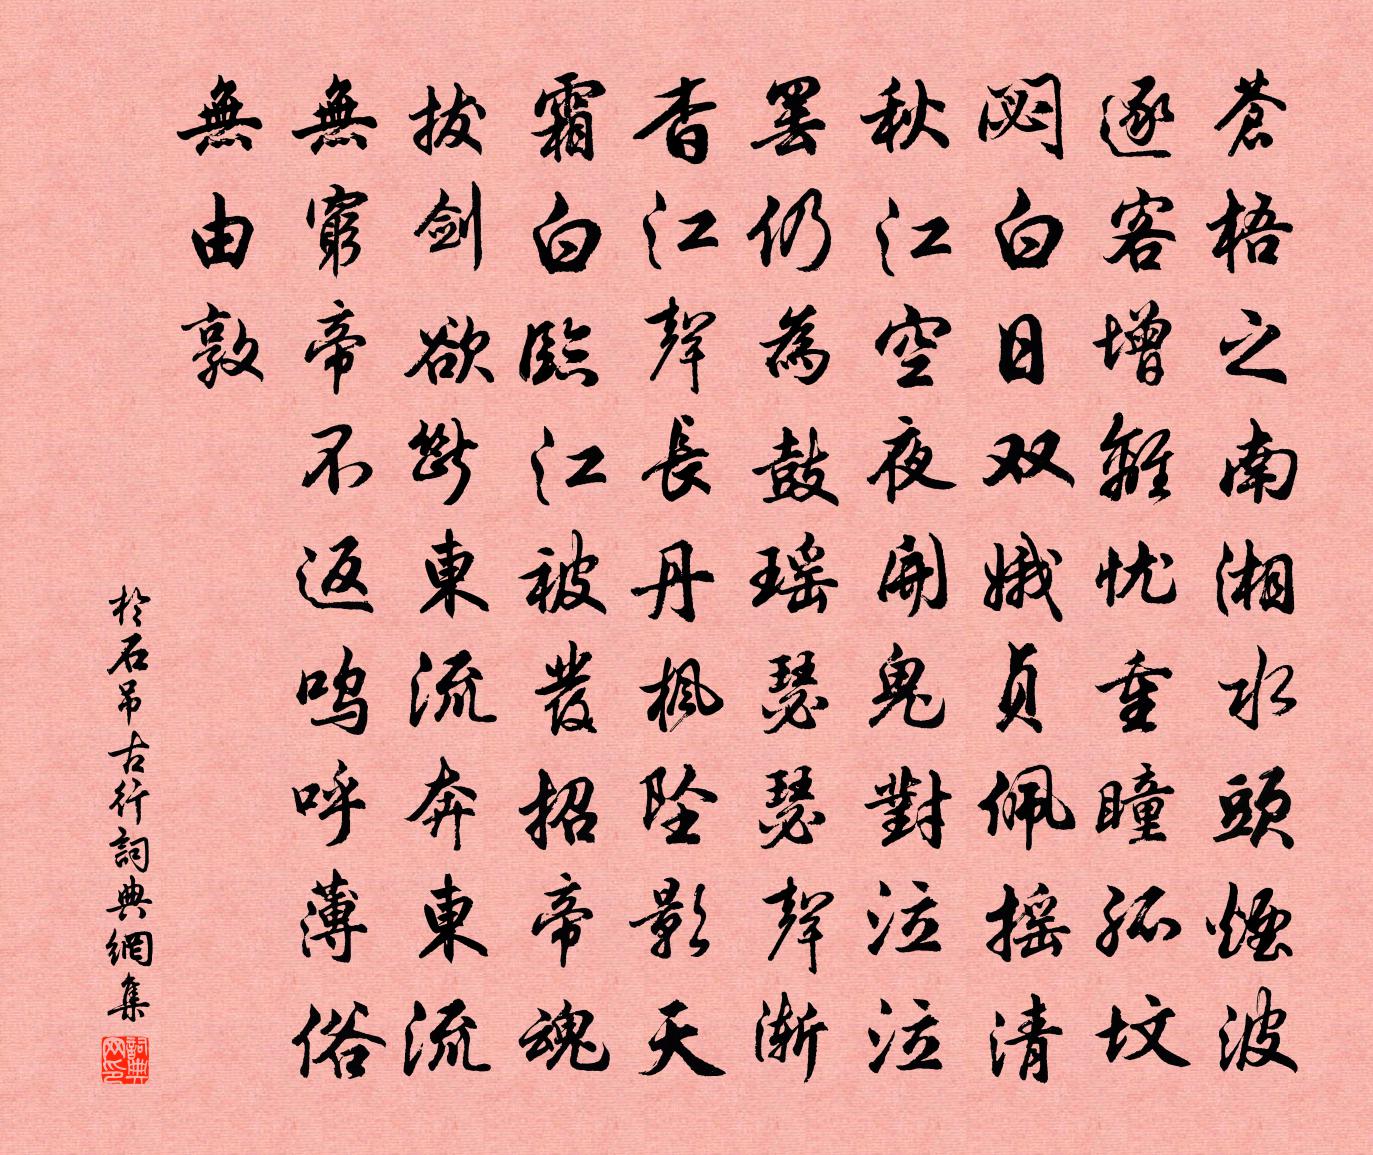 蒼梧之南湘水頭煙波
逐客增離忧重瞳孤坟
閟白日双娥貞佩摇清
秋江空夜開鬼對泣泣
罢仍為鼓瑶瑟瑟聲渐
杳江聲長丹楓坠影天
霜白臨江被發招帝魂
拔劍欲斷東流奔東流
無窮帝不返呜呼薄俗
無由敦
於石吊古行詞典網集
詞典网印